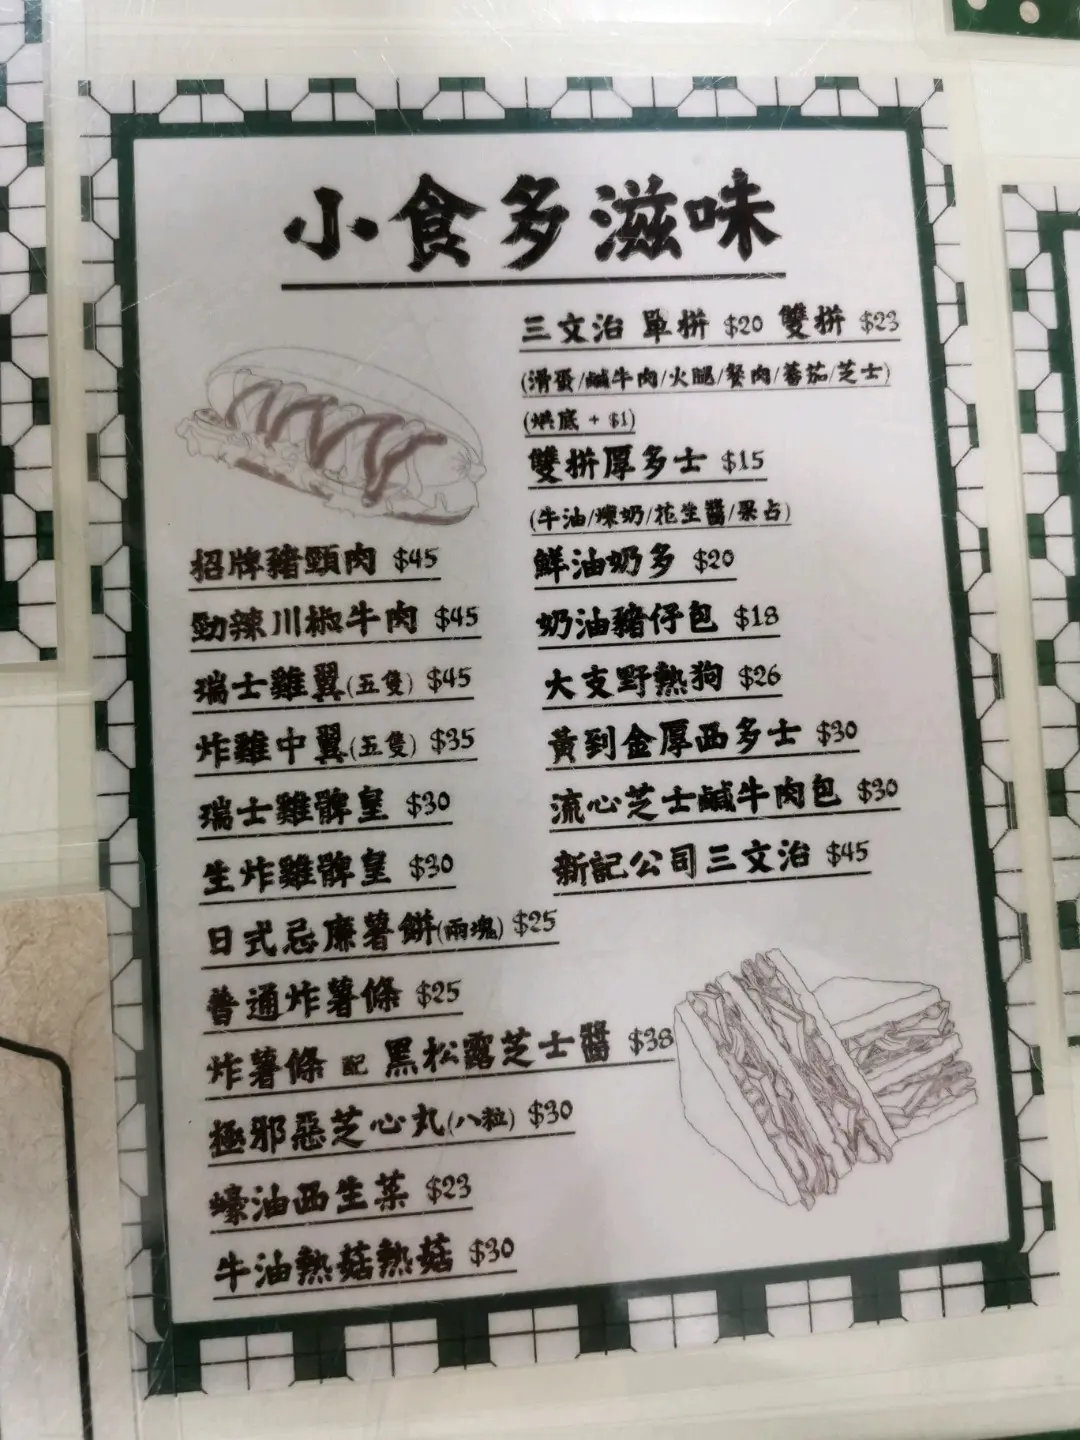 小食多滋味
招牌豬頸肉 $45
勁辣川椒牛肉 $45
瑞士雞翼(五隻) $45
炸雞中翼(五隻) $35
瑞士雞髀皇 $30
生炸雞髀皇 $30
日式忌廉薯餅(兩塊) $25
普通炸薯條 $25
炸薯條 配 黑松露芝士醬 $38
極邪惡芝心丸(八粒) $30
蠔油西生菜 $23
牛油熱菇熱菇 $30
三文治 單拼 $20 雙拼 $23
(滑蛋/鹹牛肉/火腿/餐肉/蕃茄/芝士)
(烘底 + $1)
雙拼厚多士 $15
(牛油/煉奶/花生醬/果占)
鮮油奶多 $20
奶油豬仔包 $18
大支野熱狗 $26
黃到金厚西多士 $30
流心芝士鹹牛肉包 $30
新記公司三文治 $45